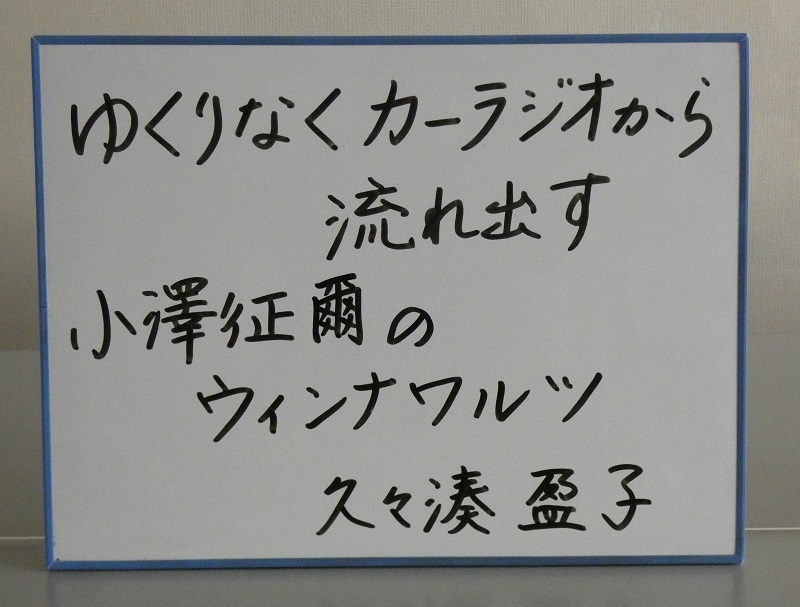 ゆくりなくカーラジオから
流れ出す
小澤征爾の
ウィンナワルツ
久々湊 盈子